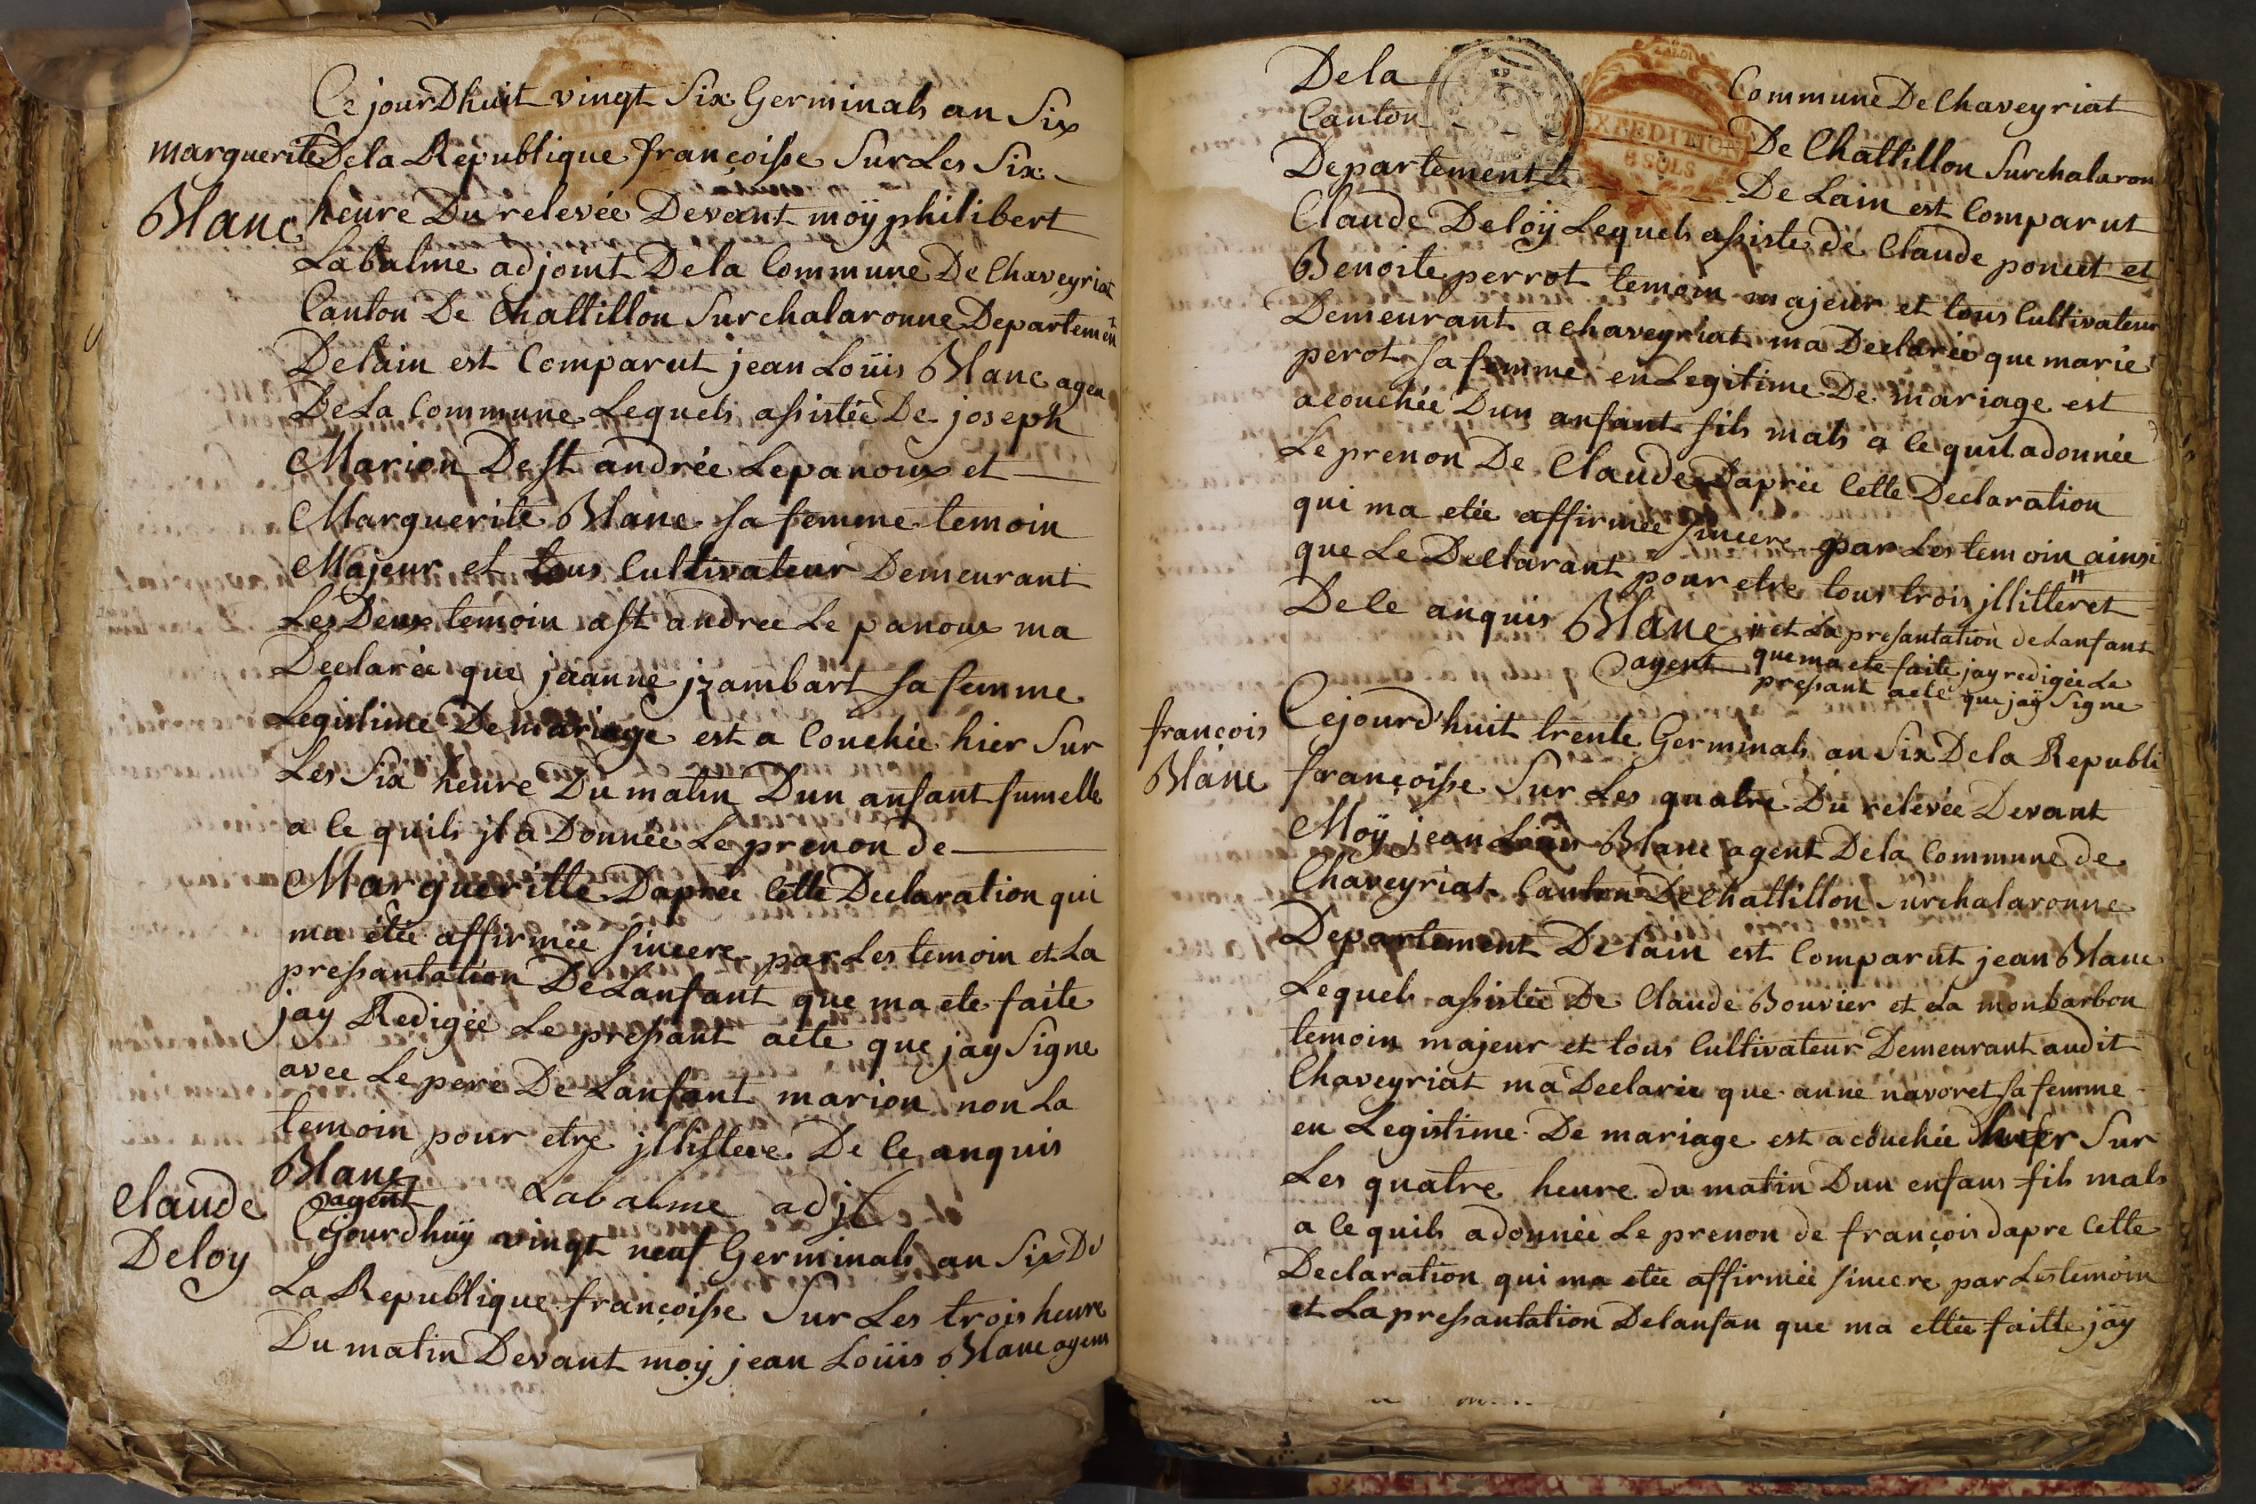 Ce jourDhuit vingt Six Germinals an Six
marguerite
Dela Republique françoisse Sur Les Six
Blanc
heure Du relevée Devant moÿ philibert
Labalme adjoint Dela Commune De Chaveyriat
Canton De Chattillon Surchalaronne Departement
Delain est Comparut jean Loüis Blanc agen
DeLa Commune Lequels assistée De joseph
Marion De st andrée Lepanoux et
Marguerite Blanc sa femme temoin
Majeur et tous Cultivateur Demeurant
Les Deux temoin a st andree Le panoux ma
Declarée que jeanne jzambart sa femme
Legistime De mariage est a Couchée hier Sur
Les Six heure Du matin Dun ansant fumelle
a Ce quils jl a Donnée Le prenon de
Margueritte Daprée Cette Declaration qui
ma étée affirmée sincere par Les temoin et La
pressantation De Lansant que ma ete faite
jay Redigée Le pressant acte que jay Signe
avec Le pere De Lansant marion non La
temoin pour etre jllissere De Ce anquis
Blanc
agent
Labalme adjt
Claude
Deloy
Cejourdhuÿ vingt neuf Germinals an Six De
La Republique françoisse Sur Les trois heure
Du matin Devant moÿ jean Loüis Blanc agens
De la Commune De Chaveyriat
Canton De Chattillon Surchalaron
Departement De Lain est Comparut
Claude Deloÿ Lequels assiste de Claude poncet et
Benoite perrot temoin majeur et tous Cultivateur
Demeurant a chaveyriat ma Declarée que marie
perot sa femme en Legitime De mariage est
acouchée Dun anfant fils mals a Ce quil a donnée
Le prenon De Claude Daprée Cette Declaration
qui ma etée affirmée sincere par Les temoin ainsi
que Le Declarant pour etre tous trois jllitteret "
De Ce anquis Blanc " et La presantation de Lanfant
agent que ma ete faite jay redigée Le
pressant acte que jaÿ Signe
françois
Blanc
Cejourd'huit trente Germinals an Six De la Republi
françoisse Sur Les quatre Du relevée Devant
Moÿ jean Loüis Blanc agent Dela Commune de
Chaveyriat Canton De Chattillon Surchalaronne
Departement Delain est Comparut jean Blanc
Lequels assistée De Claude Bouvier et La monbarbon
temoin majeur et tous Cultivateur Demeurant audit
Chaveyriat ma Declarée que anne navoret sa femme
en Legistime De mariage est acouchée Sur
Les quatre heure du matin Dun enfans fils mals
a Ce quils a donnée Le prenon de françois dapre Cette
Declaration qui ma etée affirmée sincere par Les temoin
et La pressantation Delansan que ma ettée faitte jaÿ
EXPEDITION
8 SOLS